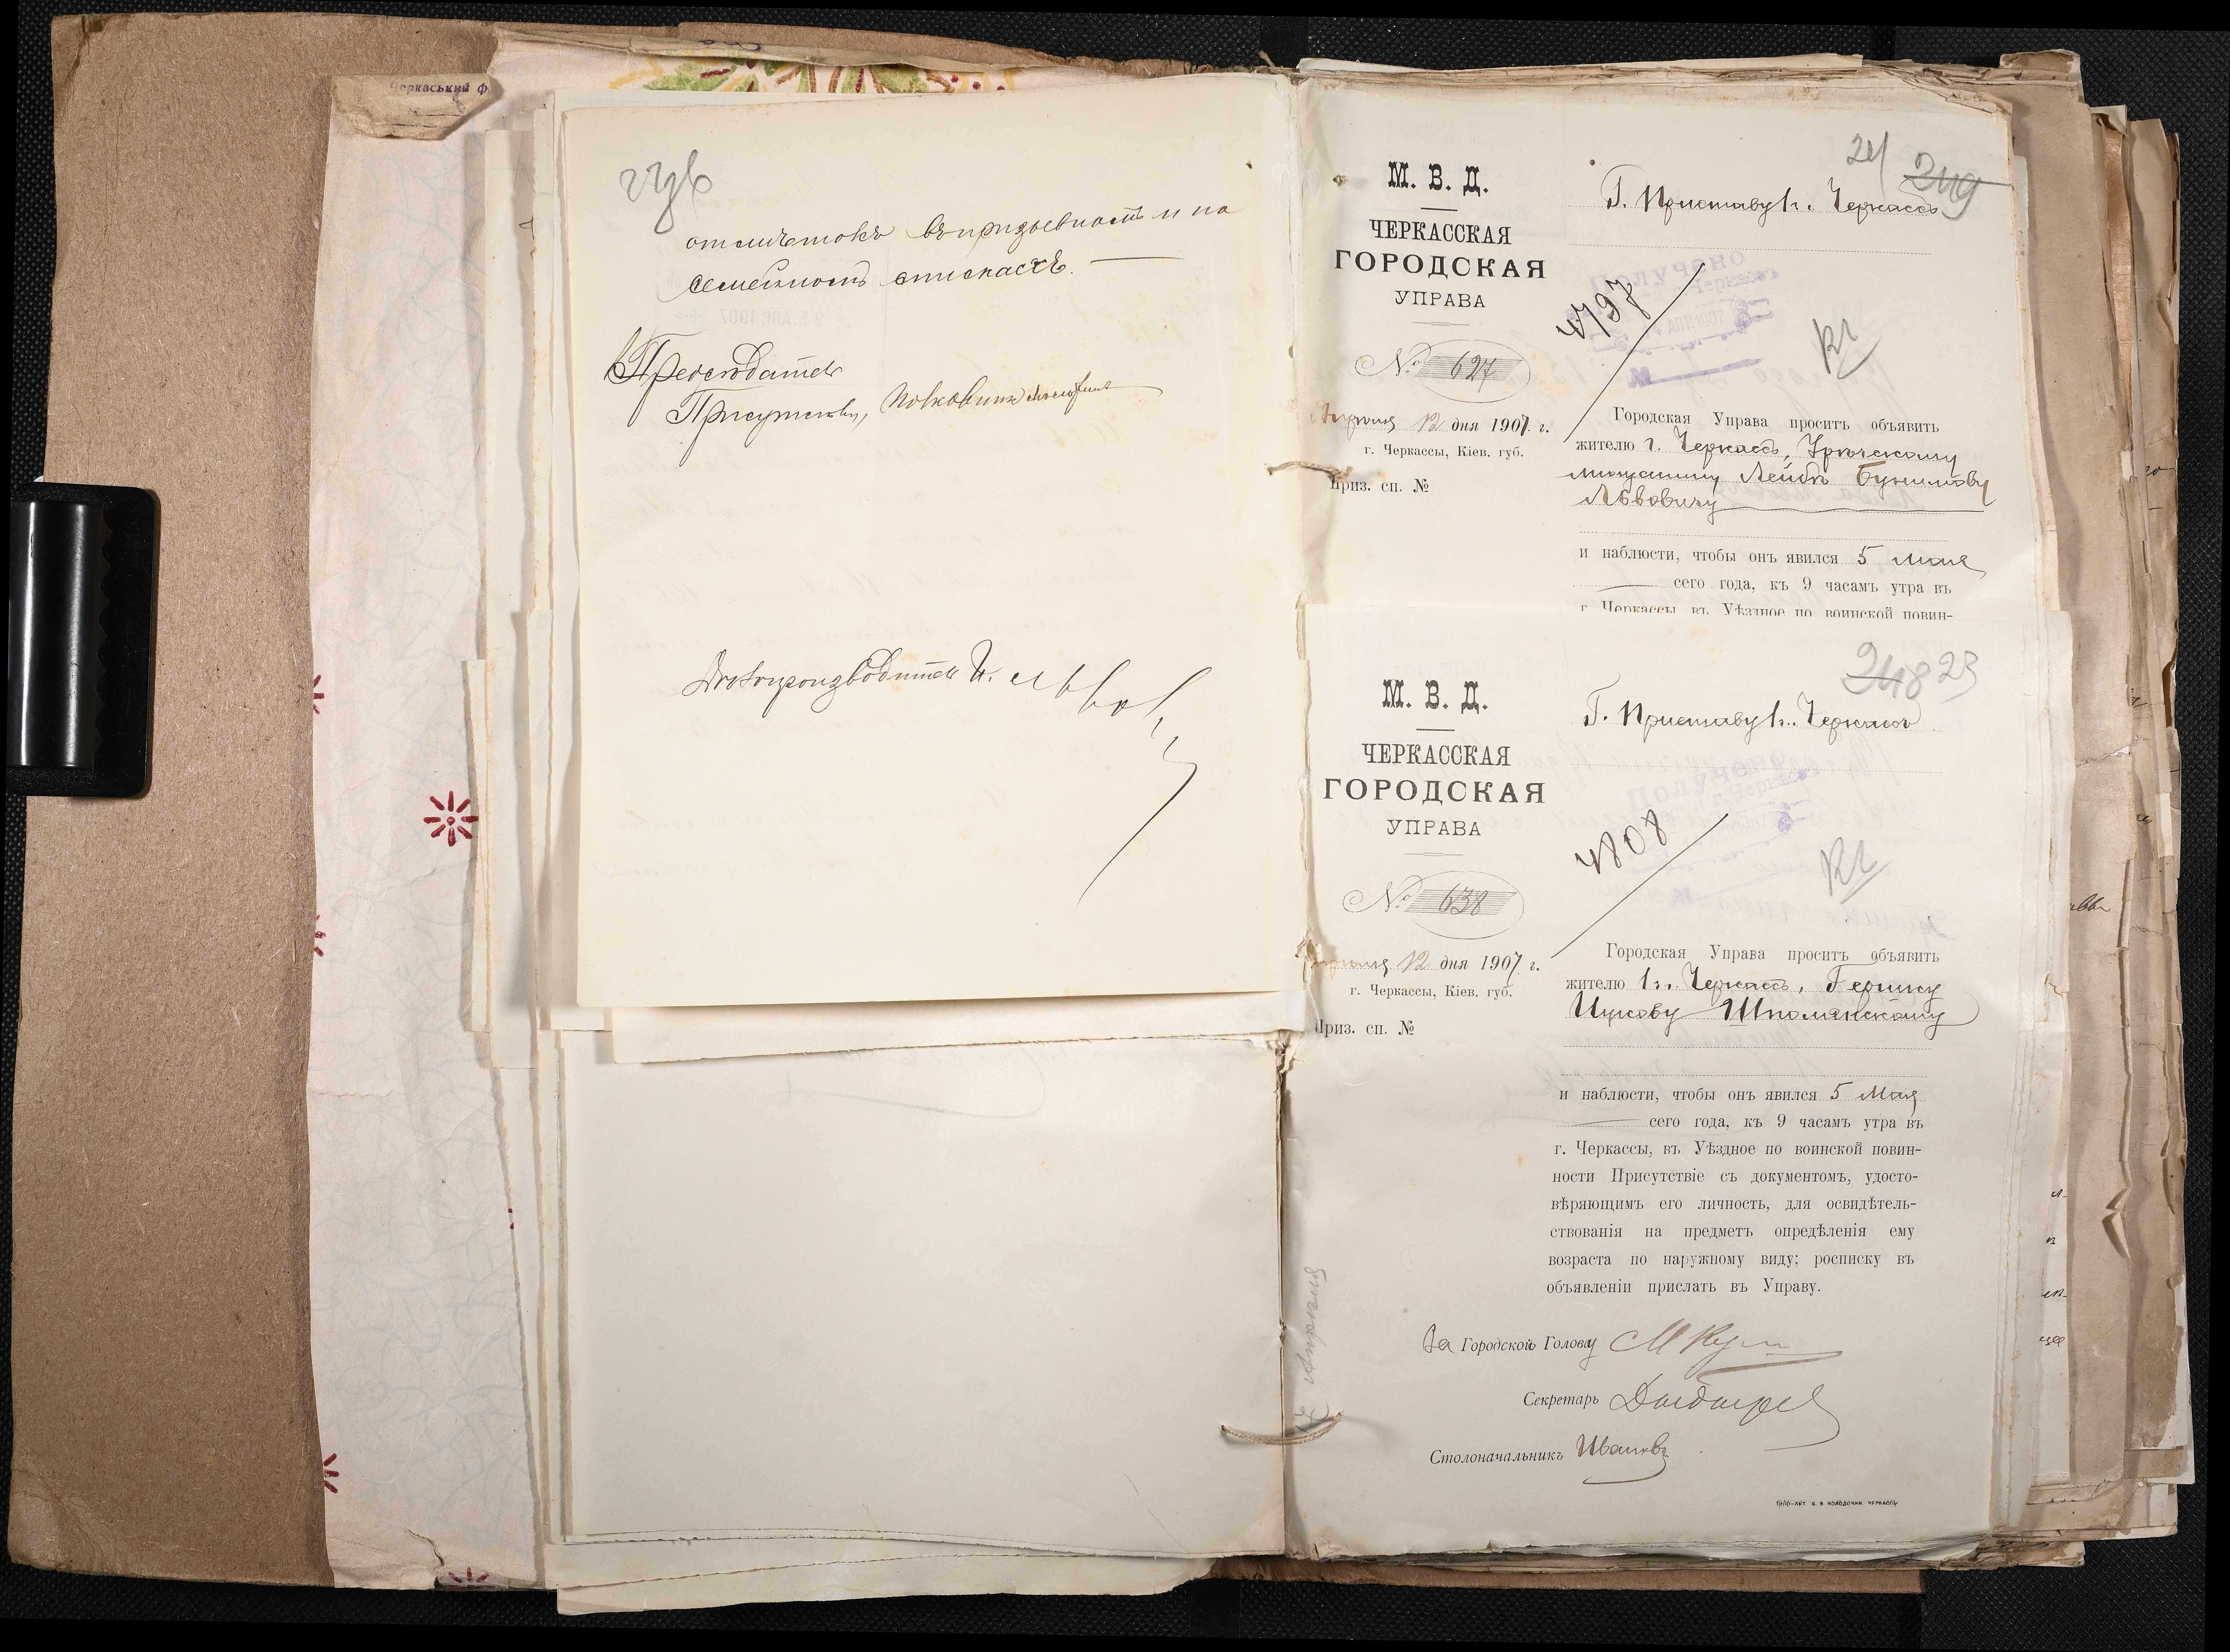 Черкаський ф
отметокъ въ призывномъ и по
семейномъ спискахъ.
Председатель
Присутствія, Полковник
Делопроизводитель И. Львов
24 249
М. В. Д.
ЧЕРКАССКАЯ
ГОРОДСКАЯ
УПРАВА
№ 624
Апреля 12 дня 1907 г.
г. Черкассы, Кіев. губ.
Приз. сп. №
Г. Приставу г. Черкассъ
Получено
4 АПР. 1907
4797
Городская Управа проситъ объявить
жителю г. Черкассъ,
мещанину Лейбе Бунимову
Львовичу
и наблюсти, чтобы онъ явился 5 мая
сего года, къ 9 часамъ утра въ
г. Черкассы въ Уѣздное по воинской повин-
248 23
М. В. Д.
ЧЕРКАССКАЯ
ГОРОДСКАЯ
УПРАВА
№ 638
Апреля 12 дня 1907 г.
г. Черкассы, Кіев. губ.
Приз. сп. №
Г. Приставу г. Черкассъ
Получено
4808
Городская Управа проситъ объявить
жителю г. Черкассъ, Гершку
Ицкову Шполянскому
и наблюсти, чтобы онъ явился 5 Мая
сего года, къ 9 часамъ утра въ
г. Черкассы, въ Уѣздное по воинской повин-
ности Присутствіе съ документомъ, удосто-
вѣряющимъ его личность, для освидѣтель-
ствованія на предметъ опредѣленія ему
возраста по наружному виду; росписку въ
объявленіи прислать въ Управу.
За Городской Голову
Секретарь
Столоначальникъ Ивановъ